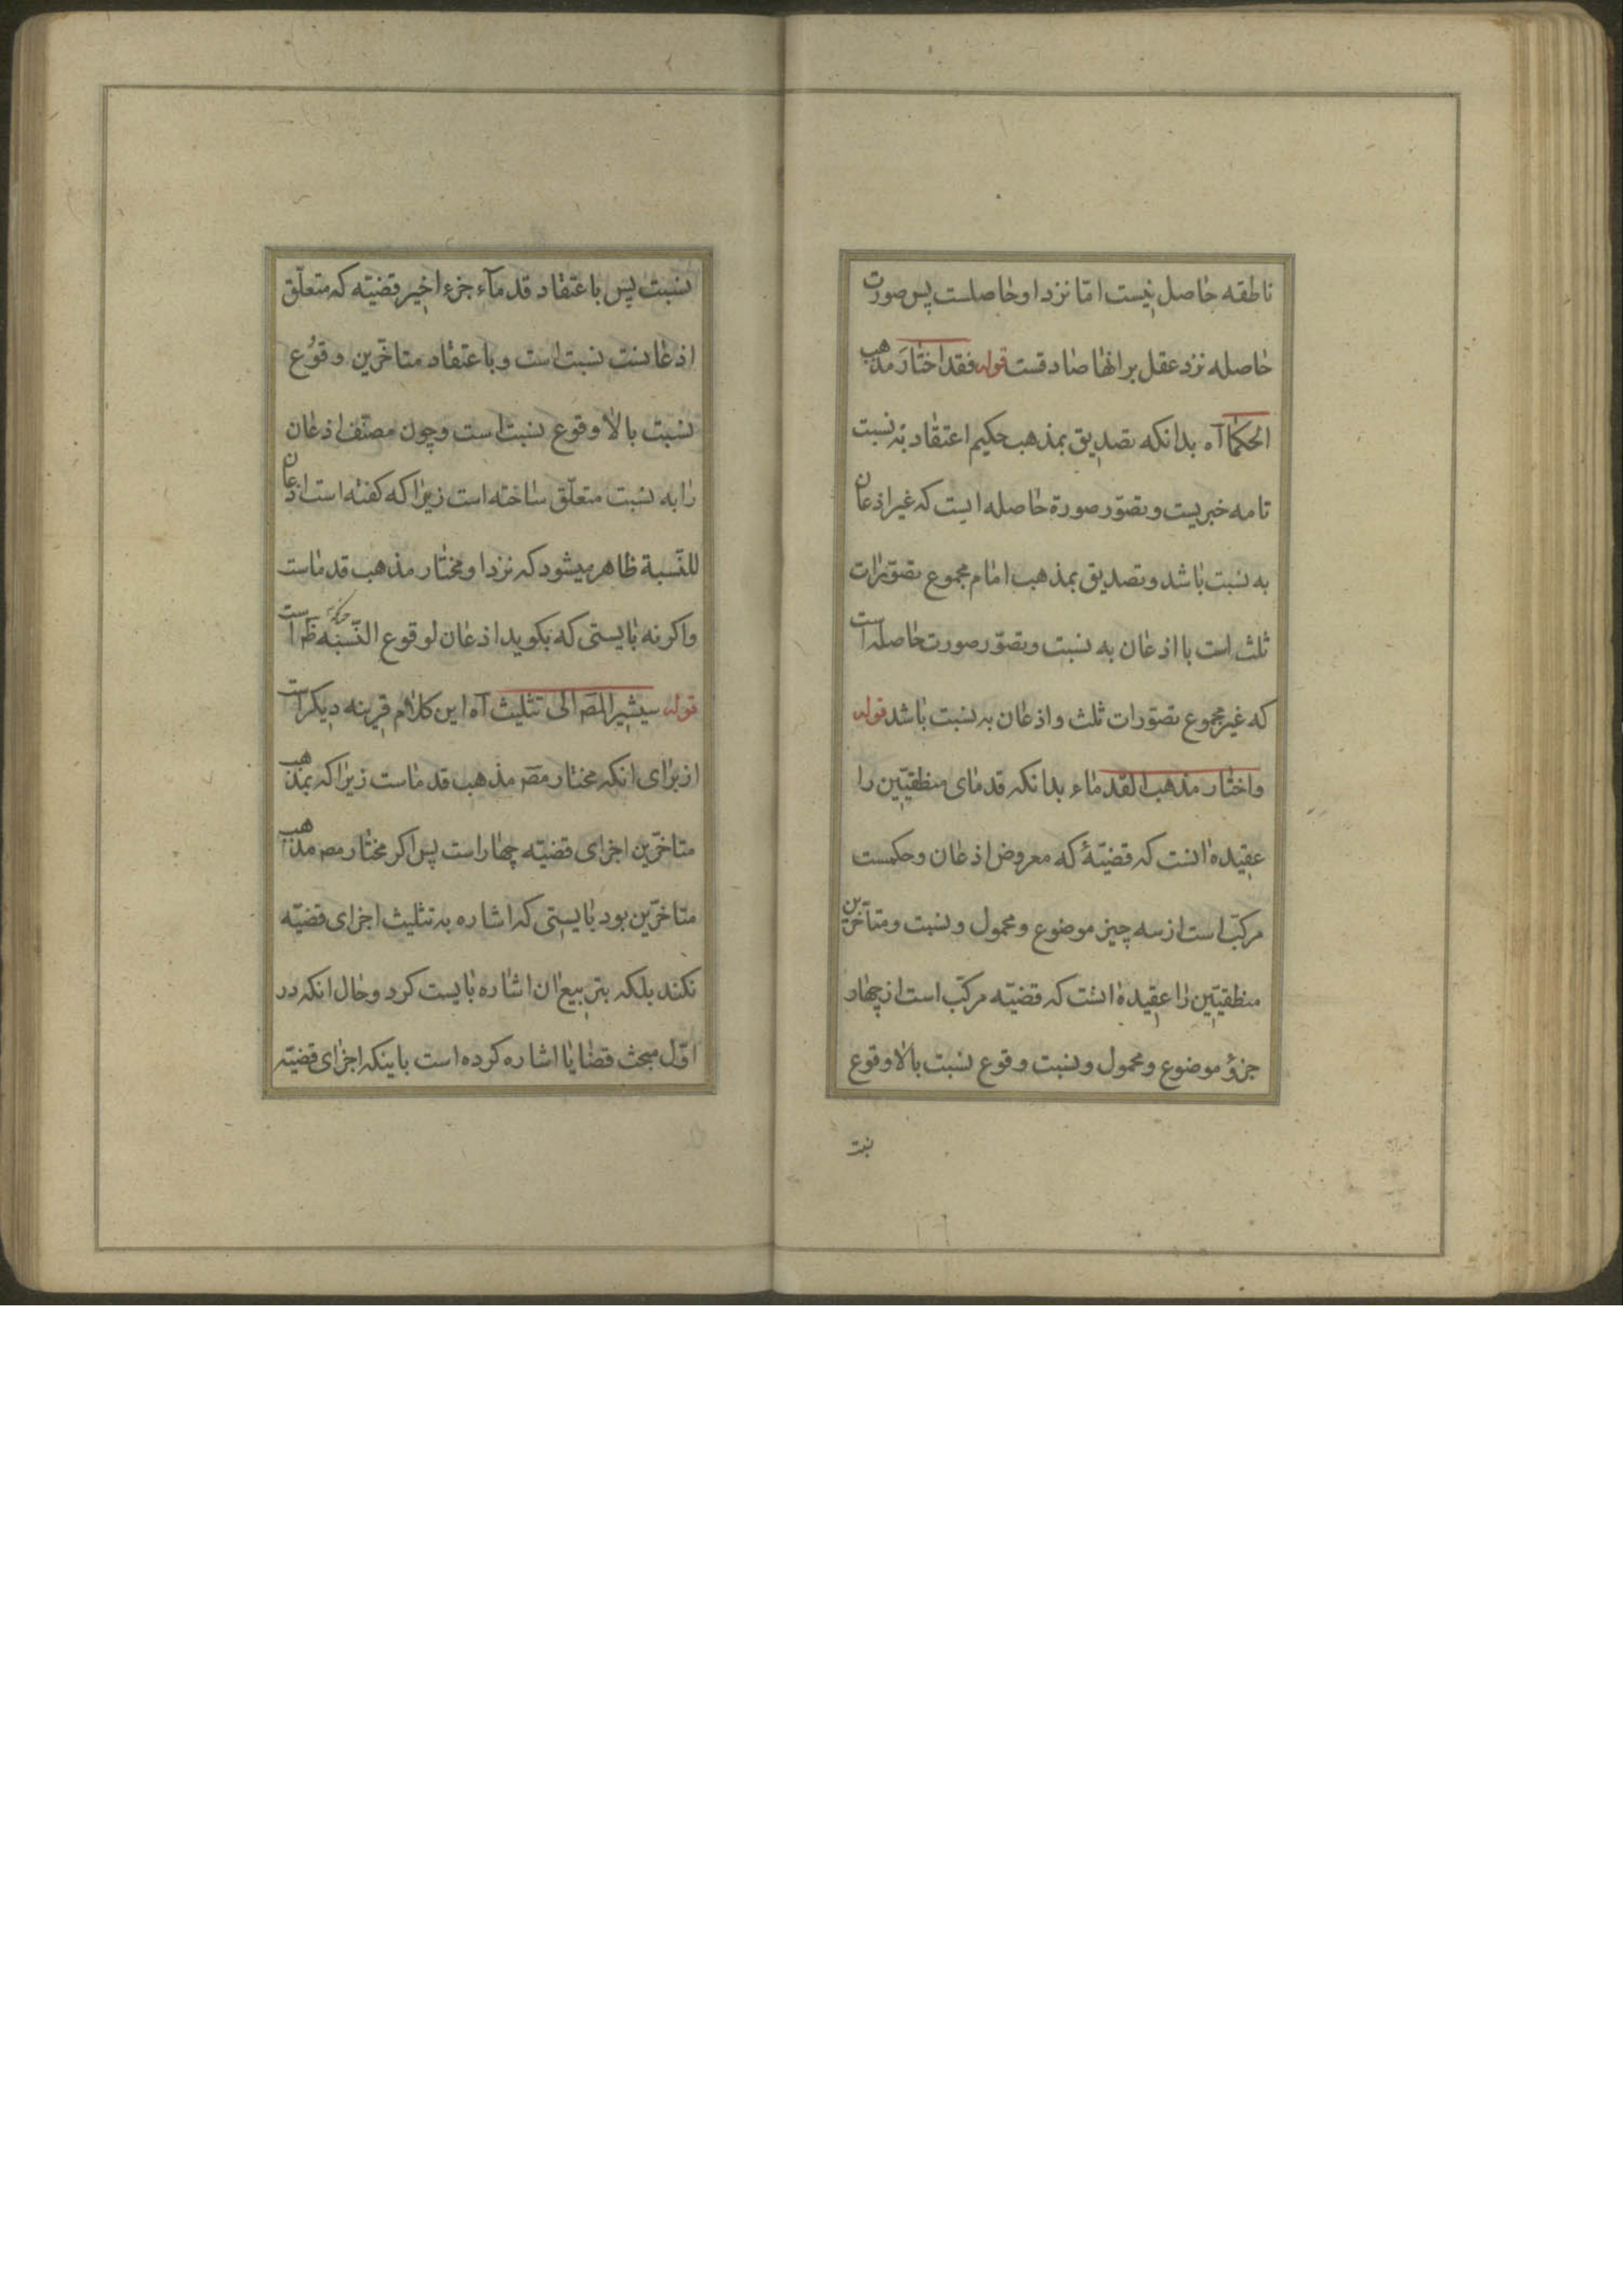 ناطقه حاصل نیست امّا نزد او حاصلست پس صورت
حاصله نزد عقل بر انها صادقست قوله فقد اختار مذهب
الحکما آه بدانکه تصدیق بمذهب حکیم اعتقاد به نسبت
تامه خبریست و تصوّر صورة حاصله ایست که غیر اذعان
به نسبت باشد و تصدیق بمذهب امام مجموع تصوّرات
ثلث است با اذعان به نسبت و تصوّر صورت حاصله است
که غیر مجموع تصوّرات ثلث و اذعان به نسبت باشد قوله
واختار مذهب القدماء بدانکه قدمای منطقیّین را
عقیده انست که قضیّهٔ که معروض اذعان و حکمست
مرکّب است از سه چیز موضوع و محمول و نسبت و متأخّرین
منطقیّین را عقیده انست که قضیّه مرکّب است از چهار
جزؤ موضوع و محمول و نسبت وقوع نسبت با لا وقوع
نسبت
نسبت پس باعتقاد قدمآء جزء اخیر قضیّه که متعلّق
اذعانست نسبت است و باعتقاد متاخّرین وقوع
نسبت با لا وقوع نسبت است و چون مصنّف اذعان
را به نسبت متعلّق ساخته است زیرا که کفته است اذعان
للنّسبة ظاهر میشود که نزد او مختار مذهب قدماست
واکر نه بایستی که بکوید اذعان لوقوع النّسبه است
قوله سیشیر المص الی تثلیث آه این کلام قرینه دیکر است
از برای انکه مختار مص مذهب قدماست زیرا که بمذهب
متاخّرین اجزای قضیّه چهار است پس اکر مختار مص مذهب
متاخّرین بود بایستی که اشاره به تثلیث اجزای قضیّه
نکند بلکه بتربیع ان اشاره بایست کرد و حال انکه در
اوّل مبحث قضایا اشاره کرده است باینکه اجزای قضیّه